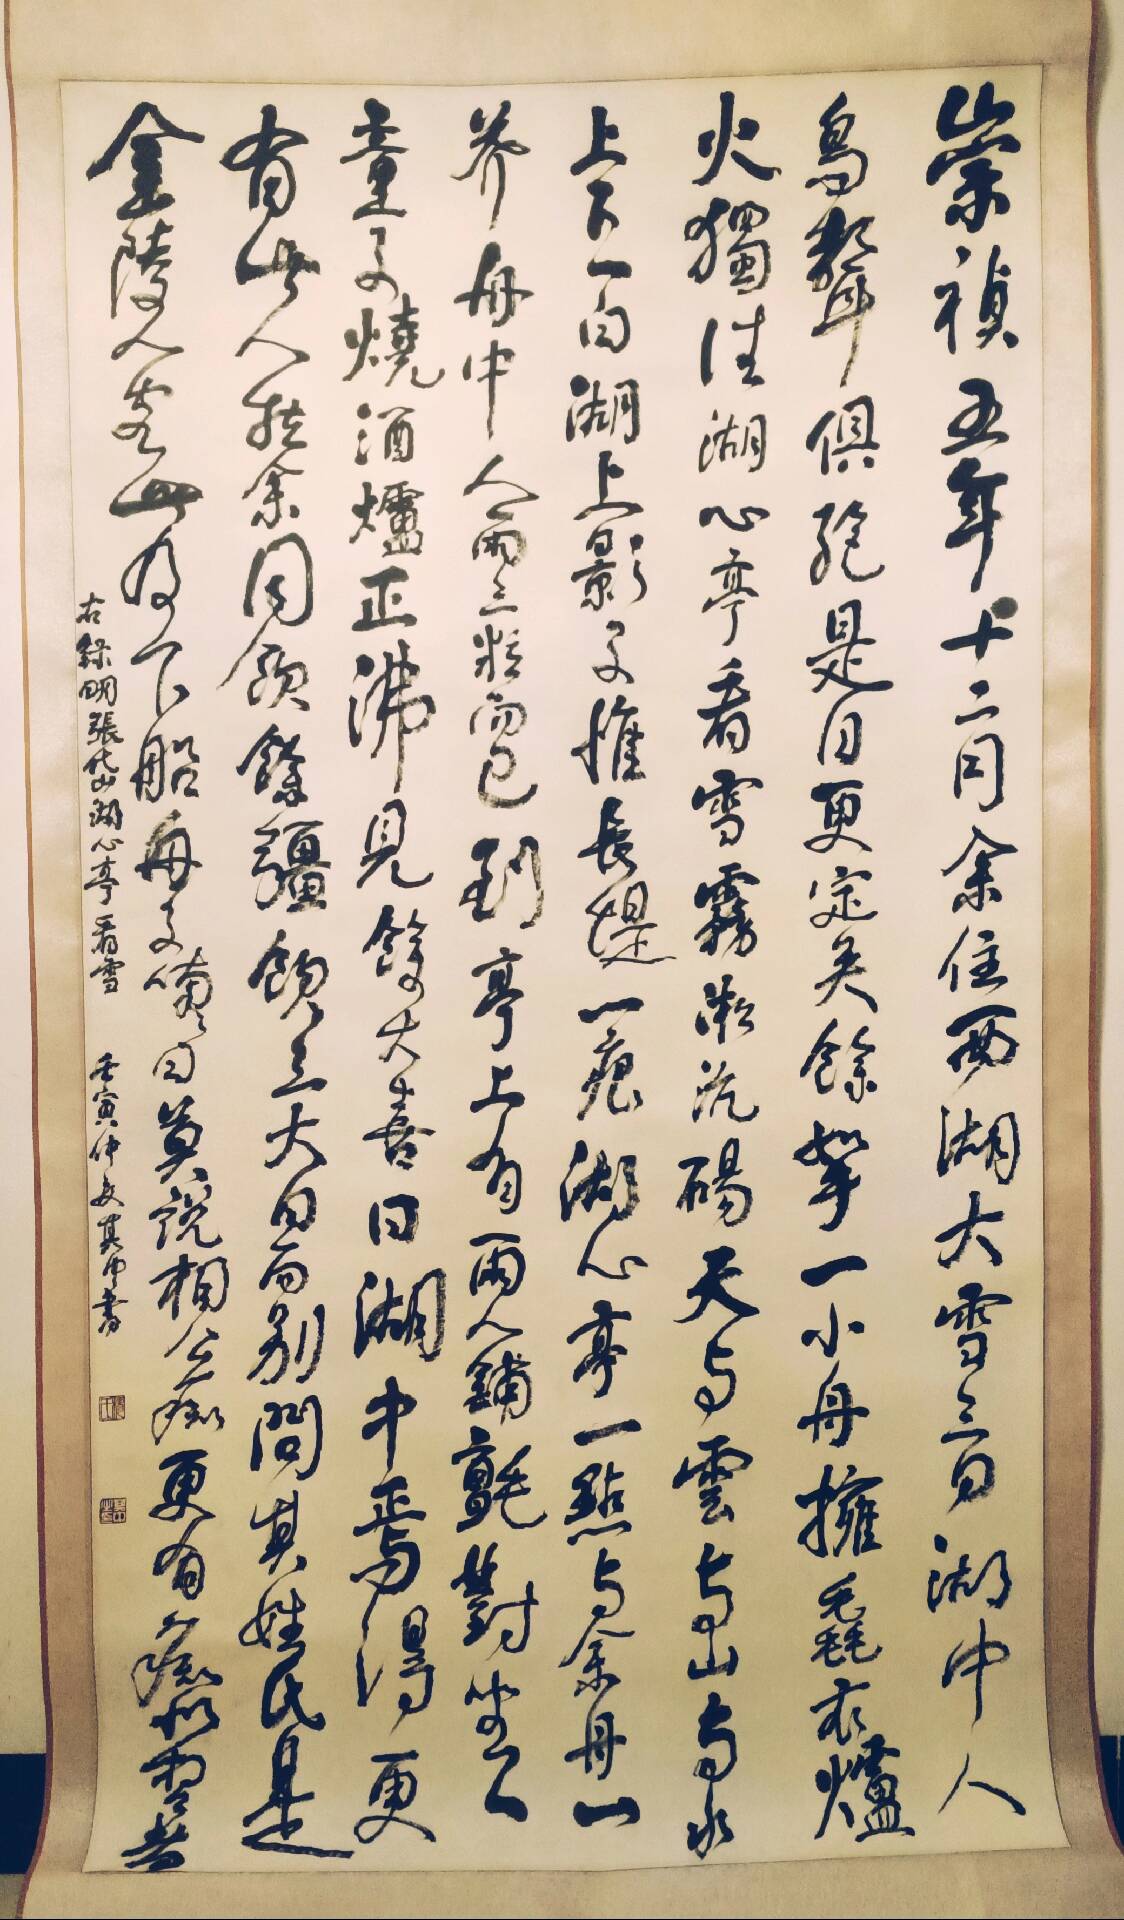 崇禎五年十二月余住西湖大雪三日湖中人
鳥聲俱絕是日更定矣餘拏一小舟擁毳衣爐
火獨往湖心亭看雪霧淞沆碭天与雲与山与水
上下一白湖上影子惟長堤一痕湖心亭一點与余舟一
芥舟中人兩三粒而已到亭上有兩人鋪氈對坐一
童子燒酒爐正沸見餘大喜曰湖中焉得更
有此人拉余同飲餘彊飲三大白而别問其姓氏是
金陵人客此及下船舟子喃喃曰莫説相公痴更有痴似相公者
右錄明張岱湖心亭看雪
壬寅仲夏其中書